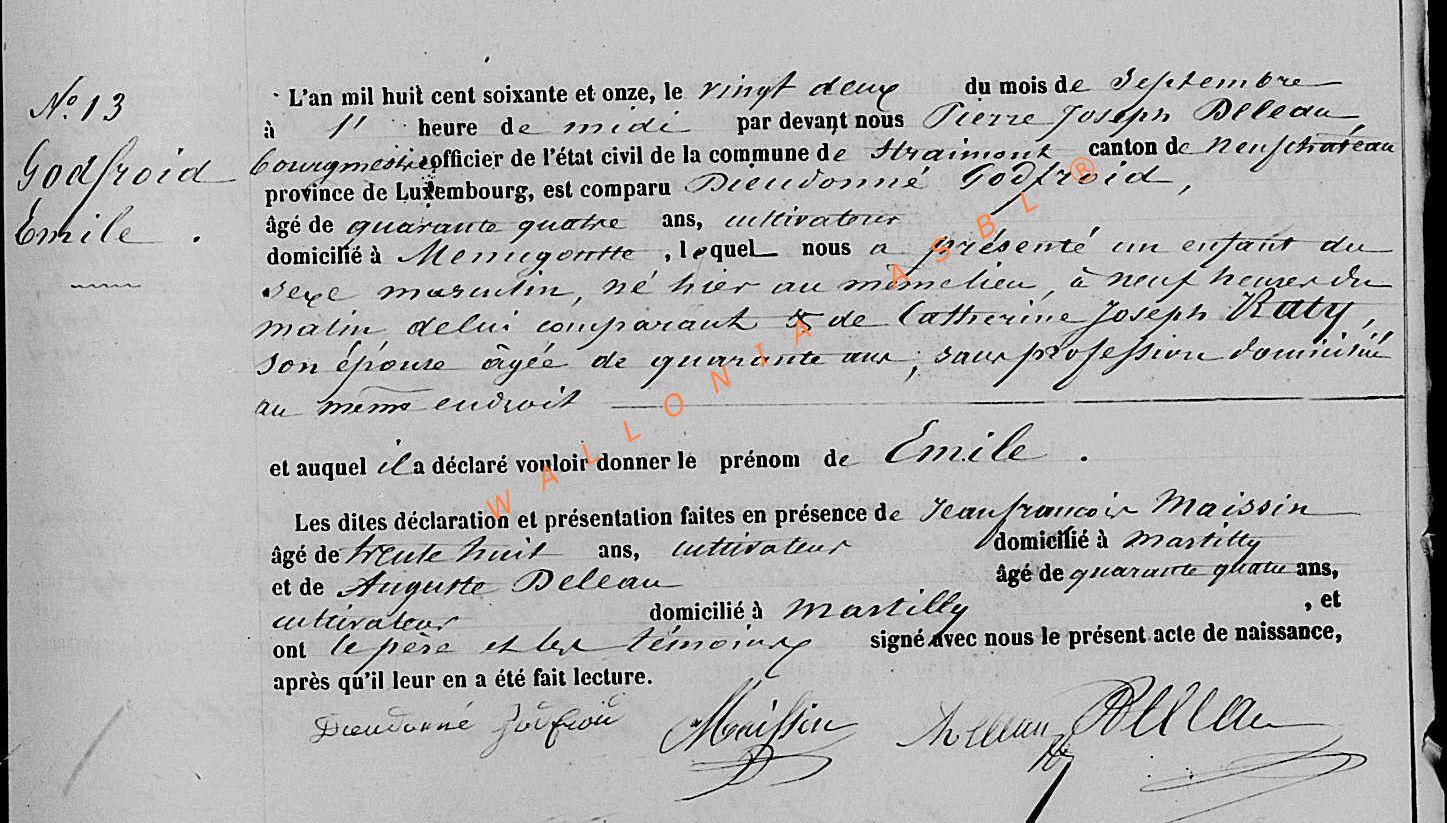 N° 13
Godfroid
Emile .
L'an mil huit cent soixante et onze, le vingt deux du mois de Septembre
à 1' heure de midi par devant nous Pierre Joseph Deleau,
bourgmestre officier de l'état civil de la commune de Straimont canton de Neufchateau
province de Luxembourg, est comparu Dieudonné Godfroid,
âgé de quarante quatre ans, cultivateur
domicilié à Menugoutte, lequel nous a présenté un enfant du
sexe masculin, né hier au même lieu, à neuf heures du
matin de lui comparant & de Catherine Joseph Raty,
son épouse âgée de quarante ans, sans profession domiciliée
au même endroit
et auquel il a déclaré vouloir donner le prénom de Emile .
Les dites déclaration et présentation faites en présence de Jean françois Maissin
âgé de trente huit ans, cultivateur domicilié à Martilly
et de Auguste Deleau âgé de quarante quatre ans,
cultivateur domicilié à Martilly , et
ont le père et les témoins signé avec nous le présent acte de naissance,
après qu'il leur en a été fait lecture.
Dieudonné Godfroid Maissin Deleau
WALLONIA ASBL ®